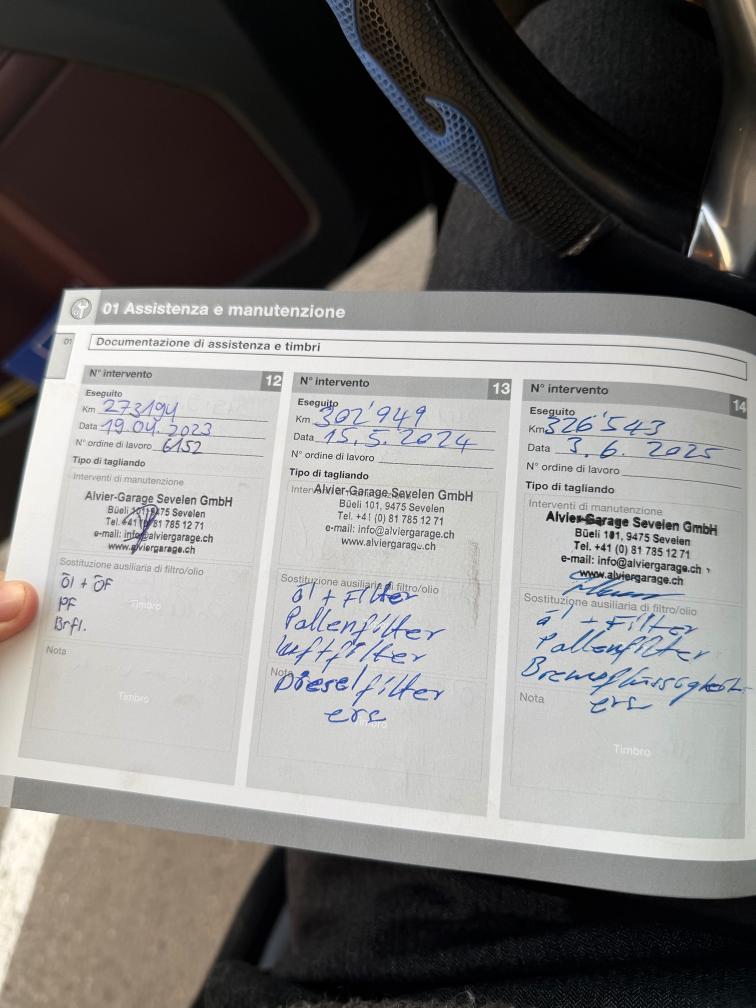 01 Assistenza e manutenzione
01
Documentazione di assistenza e timbri
N° intervento 12
Eseguito
Km 273194
Data 19.04.2023
N° ordine di lavoro 6152
Tipo di tagliando
Interventi di manutenzione
Alvier-Garage Sevelen GmbH
Büeli 101, 9475 Sevelen
Tel. +41 (0) 81 785 12 71
e-mail: info@alviergarage.ch
www.alviergarage.ch
Sostituzione ausiliaria di filtro/olio
Öl + ÖF
Timbro
PF
Brfl.
Nota
Timbro
N° intervento 13
Eseguito
Km 302'949
Data 15.5.2024
N° ordine di lavoro
Tipo di tagliando
Alvier-Garage Sevelen GmbH
Büeli 101, 9475 Sevelen
Tel. +41 (0) 81 785 12 71
e-mail: info@alviergarage.ch
www.alviergarage.ch
Sostituzione ausiliaria di filtro/olio
Öl + Filter
Pollenfilter
Luftfilter
Nota
Dieselfilter
ers
Timbro
N° intervento 14
Eseguito
Km 326'543
Data 3.6.2025
N° ordine di lavoro
Tipo di tagliando
Interventi di manutenzione
Alvier-Garage Sevelen GmbH
Büeli 101, 9475 Sevelen
Tel. +41 (0) 81 785 12 71
e-mail: info@alviergarage.ch
www.alviergarage.ch
Sostituzione ausiliaria di filtro/olio
Öl + Filter
Pollenfilter
Bremsflüssigkeit
Nota
ers
Timbro